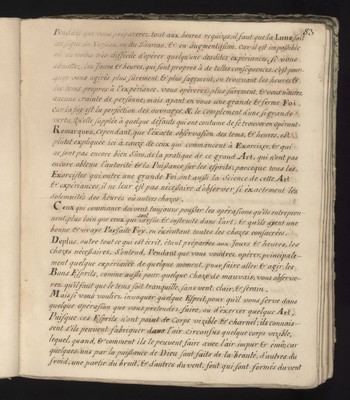 83
Pendant que vous preparerez tout aux heures requises, il faut que la Lune, soit
au signe ou du Taureau, & en augmentation. Car il est impossible
ou au moins tres difficile d'operer quelqu'une desdites experiences, si vous
les Jours & heures, qui sont propres à de telles consequences, c'est pour-
quoy vous agirés plus sûrement & plus sagement, en trouvant les heures &
les tems propres à l'experience, vous opérerés plus sûrement, & vous n'aurés
aucune crainte de personne; mais ayant en vous une grande & ferme Foi.
Car la foy est la perfection des ouvrages, & le complement d'une si grande
vertu. Qu'elle supplée à quelque défaut qui
Remarquez, cependant, que l'exacte observation des tems, & heures, est
plutot expliquée ici à ceux qui commencent à Exorcizer, & qui
ne sont pas encore bien Sûrs de la pratique de ce grand Art, qui n'ont pas
encore obtenu l'autorité & la Puissance sur les esprits; parceque tous les
Exorcistes qui ont une grande Foi, ont aussi la science de cette Art
& experiences, il ne leur est pas necessaire d'observer si exactement les
solemnités des heures où autres choses.
Ceux qui commancent doivent toujours pousser les operations qu'ils entrepren-
nent plus loin que ceux qui sont & entendu dans l'art; & qu'ils ayent une
bonne & vraye Parfaite Foy, en exécutant toutes les choses consacrées.
Deplus, outre tout ce qui est écrit, étant préparées aux Jours & heures, les
choses nécessaires, s'entend. Pendant que vous voudrez operer, principale-
ment quelque experience de quelque moment, pour faire aller & agir les
Bons Esprits, comme aussi pour quelque chose de mauvais, vous observe-
rez, qu'il faut que le tems soit tranquille, sans vent, clair, & serein.
Mais si vous voulez invoquer quelque Esprit, pour qu'il vous serve dans
quelque Operation que vous pretendez, faire, ou d'exercer quelque Art,
Puisque ces Esprits n'ont point de Corps visible & charnel; ils connois-
sent s'ils peuvent fabriquer dans l'air circonfus quelque corps visible,
lequel, quand, & comment ils le peuvent faire avec l'air impur & émis car
quelques uns par la puissance de Dieu sont faits de la beauté, d'autres du
froid, une partie du bruit, & d'autres du vent, sont qui sont formés du vent